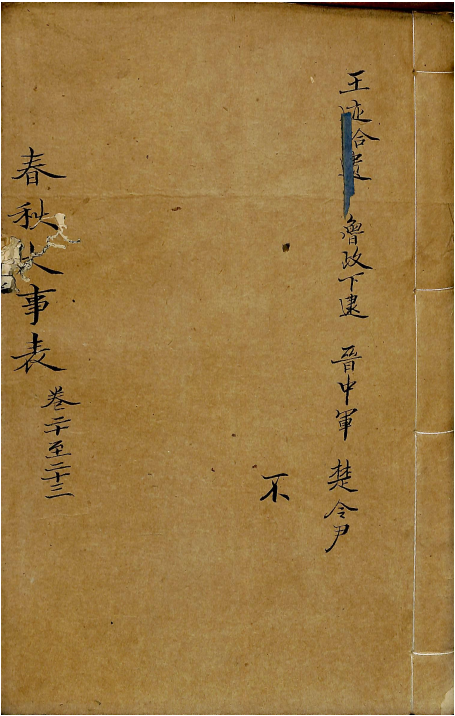 王迹拾遺 魯政下逮 晉中軍 楚令尹
不
春秋大事表 卷二十至二十三